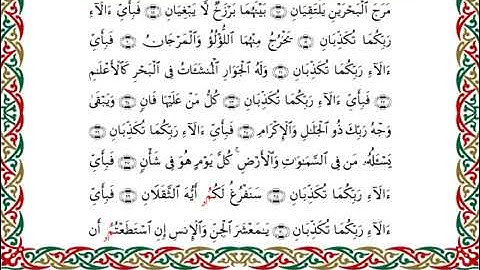 مَرَجَ ٱلْبَحْرَيْنِ يَلْتَقِيَانِ ۝ بَيْنَهُمَا بَرْزَخٌ لَّا يَبْغِيَانِ ۝ فَبِأَيِّ ءَالَآءِ
رَبِّكُمَا تُكَذِّبَانِ ۝ يَخْرُجُ مِنْهُمَا ٱللُّؤْلُؤُ وَٱلْمَرْجَانُ ۝ فَبِأَيِّ
ءَالَآءِ رَبِّكُمَا تُكَذِّبَانِ ۝ وَلَهُ ٱلْجَوَارِ ٱلْمُنشَـَٔاتُ فِى ٱلْبَحْرِ كَٱلْأَعْلَـٰمِ
۝ فَبِأَيِّ ءَالَآءِ رَبِّكُمَا تُكَذِّبَانِ ۝ كُلُّ مَنْ عَلَيْهَا فَانٍ ۝ وَيَبْقَىٰ
وَجْهُ رَبِّكَ ذُو ٱلْجَلَـٰلِ وَٱلْإِكْرَامِ ۝ فَبِأَيِّ ءَالَآءِ رَبِّكُمَا تُكَذِّبَانِ ۝
يَسْـَٔلُهُۥ مَن فِى ٱلسَّمَـٰوَٰتِ وَٱلْأَرْضِ ۚ كُلَّ يَوْمٍ هُوَ فِى شَأْنٍ ۝ فَبِأَيِّ
ءَالَآءِ رَبِّكُمَا تُكَذِّبَانِ ۝ سَنَفْرُغُ لَكُمُۥ أَيُّهَ ٱلثَّقَلَانِ ۝ فَبِأَيِّ
ءَالَآءِ رَبِّكُمَا تُكَذِّبَانِ ۝ يَـٰمَعْشَرَ ٱلْجِنِّ وَٱلْإِنسِ إِنِ ٱسْتَطَعْتُمُۥ أَن